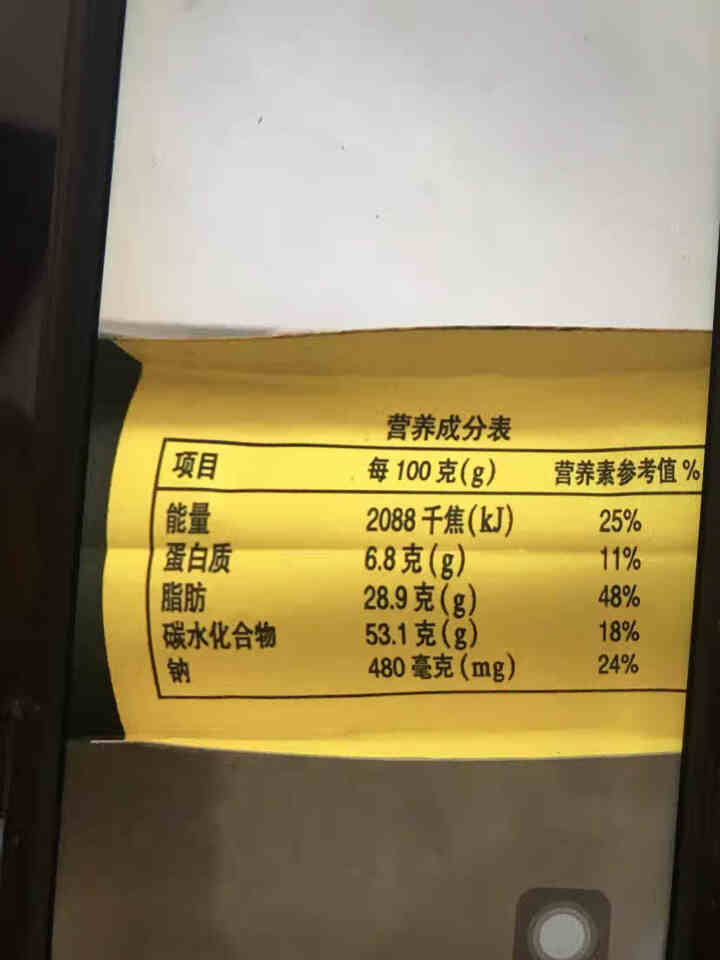 营养成分表
项目 每 100 克(g) 营养素参考值 %
能量 2088 千焦(kJ) 25%
蛋白质 6.8 克(g) 11%
脂肪 28.9 克(g) 48%
碳水化合物 53.1 克(g) 18%
钠 480 毫克(mg) 24%